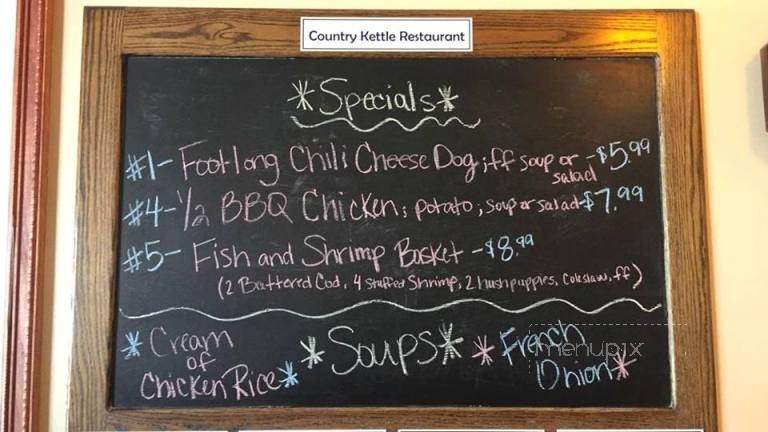 Country Kettle Restaurant
*Specials*
#1- Footlong Chili Cheese Dog; ff soup or salad -$5.99
#4- 1/2 BBQ Chicken; potato; soup or salad-$7.99
#5- Fish and Shrimp Basket -$8.99
(2 Battered Cod, 4 stuffed Shrimp, 2 hushpuppies, Coleslaw, ff)
*Cream of Chicken Rice*
*Soups*
*French Onion*
menupix